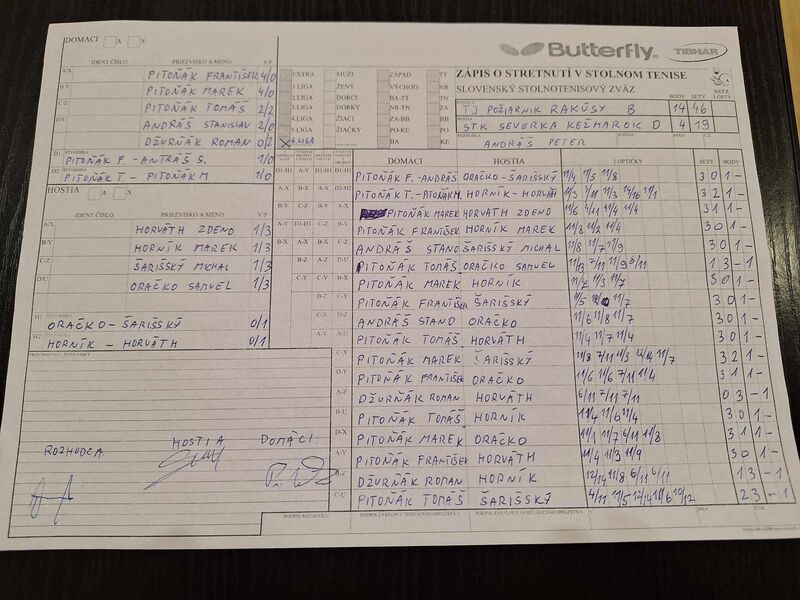 DOMÁCI A X
Butterfly
TIBHAR
IDENT.ČÍSLO PRIEZVISKO A MENO V/P
A/X PITOŇÁK FRANTIŠEK 4/0
B/Y PITOŇÁK MAREK 4/0
C/Z PITOŇÁK TOMÁŠ 2/2
D/U ANDRÁŠ STANISLAV 2/0
DŽURŇÁK ROMAN 0/2
D1 ŠTVORHRA
PITOŇÁK F. - ANTRÁŠ S. 1/0
D2 ŠTVORHRA
PITOŇÁK T - PITOŇÁK M 1/0
EXTRA MUŽI ZÁPAD TT
1.LIGA ŽENY VÝCHOD NR
2.LIGA DORCI BA-TT TN
3.LIGA DORKY NR-TN ZA
4.LIGA ŽIACI ZA-BB BB
5.LIGA ŽIAČKY PO-KE PO
X 6.LIGA BA KE
ZÁPIS O STRETNUTÍ V STOLNOM TENISE
SLOVENSKÝ STOLNOTENISOVÝ ZVÄZ
SSTZ
BODY SETY LOPTY
DOMÁCI TJ POŽIARNIK RAKÚSY B 14 46
HOSTIA STK SEVERKA KEŽMAROK D 4 19
ROZHODCA ANDRÁŠ PETER
HOSTIA A X
IDENT.ČÍSLO PRIEZVISKO A MENO V/P
A/X HORVÁTH ZDENO 1/3
B/Y HORNÍK MAREK 1/3
C/Z ŠARIŠSKÝ MICHAL 1/3
D/U ORAČKO SAMUEL 1/3
H1 ŠTVORHRA
ORAČKO - ŠARIŠSKÝ 0/1
H2 ŠTVORHRA
HORNÍK - HORVÁTH 0/1
DOMÁCI HOSTIA LOPTIČKY SETY BODY
PITOŇÁK F. - ANDRÁŠ ORAČKO - ŠARIŠSKÝ 11/4 11/5 11/8 3 0 1 -
PITOŇÁK T. - PITOŇÁK M. HORNÍK - HORVÁTH 3 2 1 -
PITOŇÁK MAREK HORVÁTH ZDENO 11/6 6/11 11/4 11/4 3 1 1 -
PITOŇÁK FRANTIŠEK HORNÍK MAREK 11/8 11/2 11/4 3 0 1 -
ANDRÁŠ STANO ŠARIŠSKÝ MICHAL 11/8 11/7 11/9 3 0 1 -
PITOŇÁK TOMÁŠ ORAČKO SAMUEL 1 3 - 1
PITOŇÁK MAREK HORNÍK 11/2 11/3 11/7 3 0 1 -
PITOŇÁK FRANTIŠEK ŠARIŠSKÝ 3 0 1 -
ANDRÁŠ STANO ORAČKO 11/6 11/8 11/7 3 0 1 -
PITOŇÁK TOMÁŠ HORVÁTH 11/4 11/7 11/4 3 0 1 -
C-X PITOŇÁK MAREK ŠARIŠSKÝ 11/8 7/11 11/3 12/14 11/7 3 2 1 -
D-Y PITOŇÁK FRANTIŠEK ORAČKO 11/6 11/6 7/11 11/4 3 1 1 -
A-Z DŽURŇÁK ROMAN HORVÁTH 6/11 7/11 7/11 0 3 - 1
B-U PITOŇÁK TOMÁŠ HORNÍK 11/4 11/6 11/4 3 0 1 -
D-X PITOŇÁK MAREK ORAČKO 11/1 11/7 6/11 11/8 3 1 1 -
A-Y PITOŇÁK FRANTIŠEK HORVÁTH 11/4 11/3 11/9 3 0 1 -
B-Z DŽURŇÁK ROMAN HORNÍK 12/14 11/8 6/11 6/11 1 3 - 1
C-U PITOŇÁK TOMÁŠ ŠARIŠSKÝ 4/11 11/5 12/14 11/6 10/12 2 3 - 1
PRIPOMIENKY, POZNÁMKY
ROZHODCA HOSTIA DOMÁCI
PODPIS ROZHODCU PODPIS ZÁSTUPCU DOMÁCEHO DRUŽSTVA PODPIS ZÁSTUPCU HOSŤUJÚCEHO DRUŽSTVA